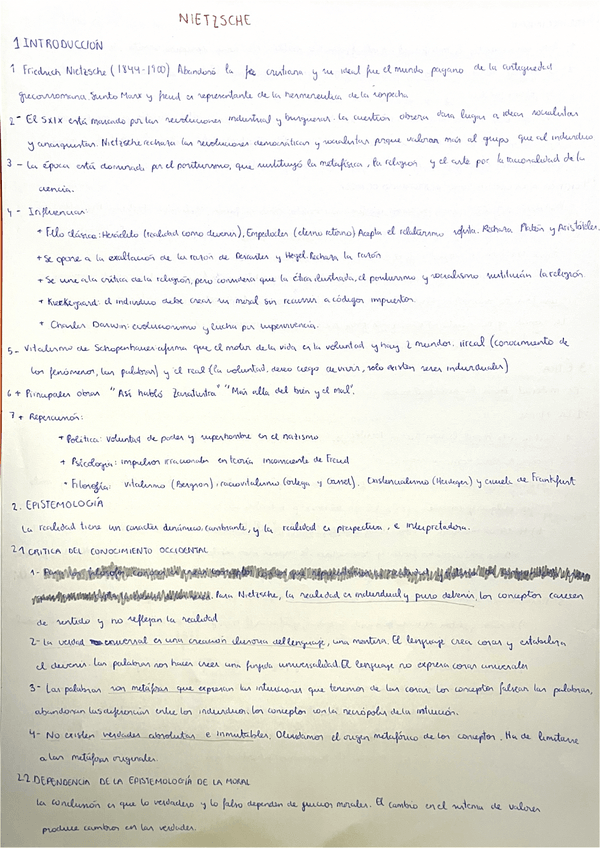 NIETZSCHE
1 INTRODUCCION
1 Friedrich Nietzsche (1844-1900) Abandonó la fe cristiana y su ideal fue el mundo pagano de la antiguedad
grecorromana. Junto Marx y Freud es representante de la hermeneutica de la sospecha
2- El SXIX está marcado por las revoluciones industrial y burguesas. La cuestion obrera dara lugar a ideas socialistas
y anarquistas. Nietzsche rechaza las revoluciones democraticas y socialistas porque valoran más al grupo que al individuo
3 - La época está dominada por el positivismo, que sustituyó la metafísica, la religion y el arte por la racionalidad de la
ciencia.
4 - Influencias:
+ Fllo clásica: Heráclito (realidad como devenir), Empedocles (eterno retorno) Acepta el relativismo sofista. Rechaza Platón y Aristóteles.
+ Se opone a la exaltación de la razon de Descartes y Hegel. Rechaza la razón
+ Se une a la critica de la religion, pero considera que la ética ilustrada, el positivismo y socialismo sustituian la religion
+ Kierkegaard: el individuo debe crear su moral sin recurrir a códigos impuestos.
+ Charles Darwin: evolucionismo y lucha por supervivencia.
5- Vitalismo de Schopenhauer afirma que el motor de la vida es la voluntad y hay 2 mundos. irreal (conocimiento de
los fenómenos, las palabras) y el real (la voluntad, deseo ciego de vivir, solo existen seres individuales)
6 + Principales obras "Así habló Zaratustra" "Más alla del bien y el mal".
7 + Repercusión:
+ Politica: voluntad de poder y superhombre en el nazismo
+ Psicologia: impulsos irracionales en teoria inconsciente de Freud
+ Filosofia: vitalismo (Bergson), raciovitalismo (Ortega y Gasset). Existencialismo (Heideger) y escuela de Frankfurt
2. EPISTEMOLOGÍA
La realidad tiene un caracter dinámico, cambiante, y la realidad es perspectiva, e interpretadora.
2.1 CRITICA DEL CONOCIMIENTO OCCIDENTAL
1-
Para Nietzsche, la realidad es individual y puro devenir, los conceptos carecen
de sentido y no reflejan la realidad
2- La verdad universal es una creación ilusoria del lenguaje, una mentira. El lenguaje crea cosas y estabiliza
el devenir. Las palabras nos hacen creer una fingida universalidad. El lenguaje no expresa cosas universales
3- Las palabras son metáforas que expresan las intuiciones que tenemos de las cosas. Los conceptos falsean las palabras,
abandonan las diferencias entre los individuos. Los conceptos son la necrópolis de la intuición.
4- No existen verdades absolutas e inmutables. Olvidamos el origen metafórico de los conceptos. Ha de limitarse
a las metáforas originales.
2.2 DEPENDENCIA DE LA EPISTEMOLOGÍA DE LA MORAL
La conclusión es que lo verdadero y lo falso dependen de juicios morales. El cambio en el sistema de valores
produce cambios en las verdades.